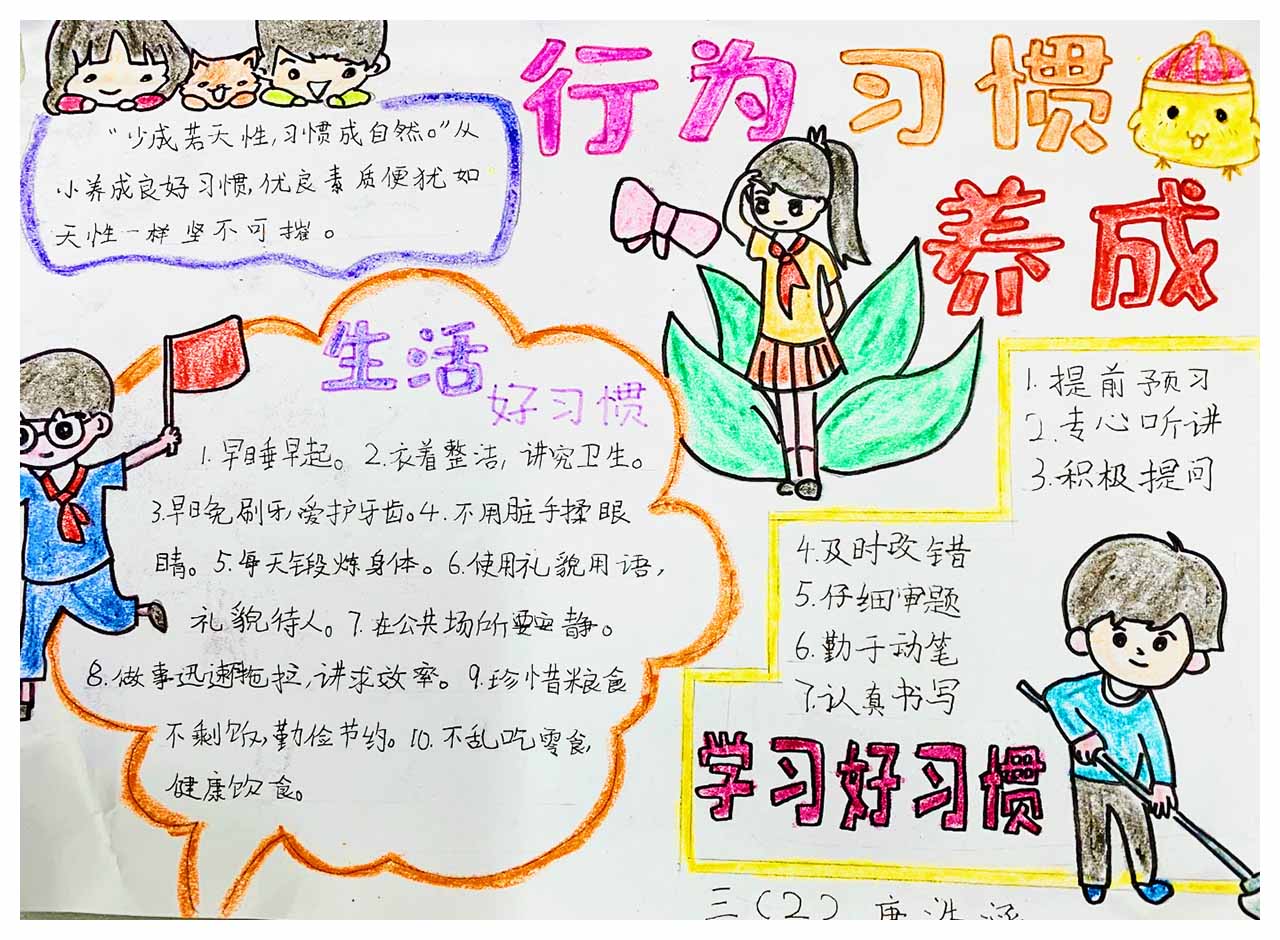 行为习惯
养成
“少成若天性,习惯成自然。”从
小养成良好习惯,优良素质便犹如
天性一样坚不可摧。
生活
好习惯
1.早睡早起。2.衣着整洁,讲究卫生。
3.早晚刷牙,爱护牙齿。4.不用脏手揉眼
睛。5.每天锻炼身体。6.使用礼貌用语,
礼貌待人。7.在公共场所要安静。
8.做事迅速不拖拉,讲求效率。9.珍惜粮食
不剩饭,勤俭节约。10.不乱吃零食,
健康饮食。
1.提前预习
2.专心听讲
3.积极提问
4.及时改错
5.仔细审题
6.勤于动笔
7.认真书写
学习好习惯
三(2)